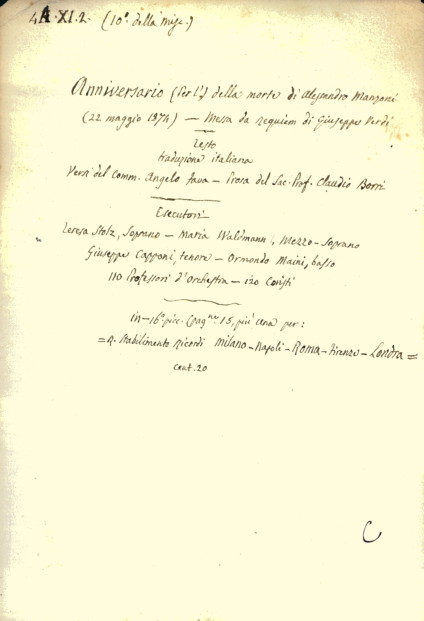 4A.XI.2. (10° della misc.)
Anniversario (Per l') della morte di Alessandro Manzoni
(22 maggio 1874) — Messa da Requiem di Giuseppe Verdi
Testo
traduzione italiana
Versi del Comm. Angelo Fava — Prosa del Sac. Prof. Claudio Borri
Esecutori
Teresa Stolz, Soprano — Maria Waldmann, Mezzo-Soprano
Giuseppe Capponi, tenore — Ormondo Maini, basso
110 Professori d'Orchestra — 120 Coristi
in-16° picc. (pagne 15, più una per:
= R. Stabilimento Ricordi Milano – Napoli – Roma – Firenze – Londra =
cent. 20
C